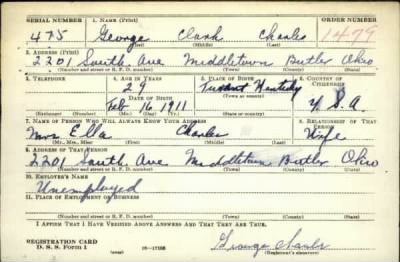 SERIAL NUMBER 1. NAME (Print) ORDER NUMBER
475 George Clark Charles 1479
(First) (Middle) (Last)
2. ADDRESS (Print)
2201 South Ave Middletown Butler Ohio
(Number and street or R. F. D. number) (Town) (County) (State)
3. TELEPHONE 4. AGE IN YEARS 5. PLACE OF BIRTH 6. COUNTRY OF CITIZENSHIP
29 Kentucky
DATE OF BIRTH (Town or county)
Feb 16 1911 U. S. A.
(Exchange) (Number) (Mo.) (Day) (Yr.) (State or country)
7. NAME OF PERSON WHO WILL ALWAYS KNOW YOUR ADDRESS 8. RELATIONSHIP OF THAT PERSON
Mrs Ella Charles Wife
(Mr., Mrs., Miss) (First) (Middle) (Last)
9. ADDRESS OF THAT PERSON
2201 South Ave Middletown Butler Ohio
(Number and street or R. F. D. number) (Town) (County) (State)
10. EMPLOYER'S NAME
Unemployed
11. PLACE OF EMPLOYMENT OR BUSINESS
(Number and street or R. F. D. number) (Town) (County) (State)
I AFFIRM THAT I HAVE VERIFIED ABOVE ANSWERS AND THAT THEY ARE TRUE.
REGISTRATION CARD
D. S. S. Form 1 (over) George Charles
(Registrant's signature)